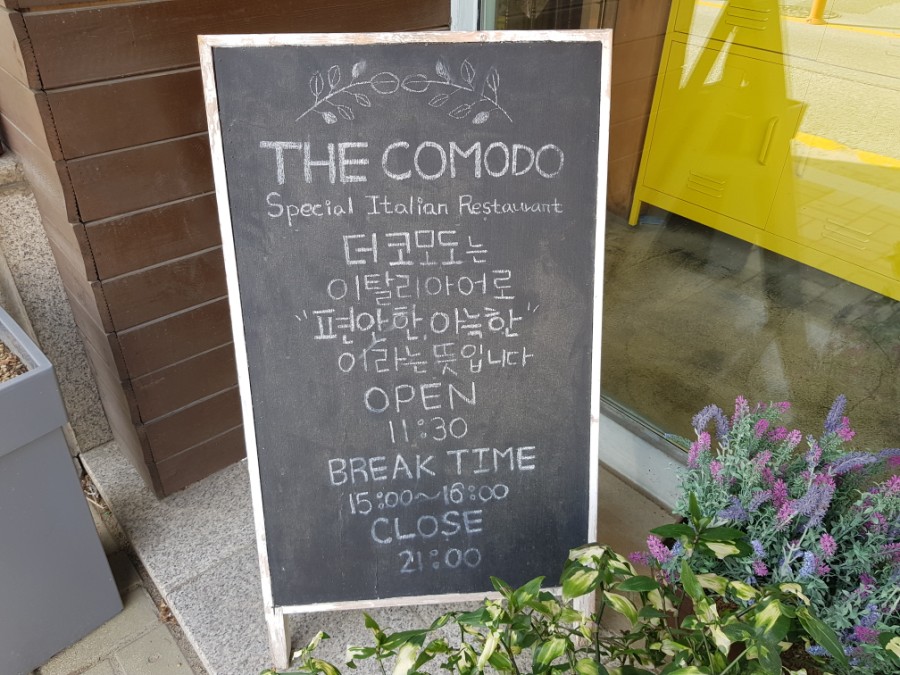 THE COMODO
Special Italian Restaurant
더 코모도는
이탈리아어로
"편안한, 아늑한"
이라는 뜻입니다
OPEN
11:30
BREAK TIME
15:00~16:00
CLOSE
21:00